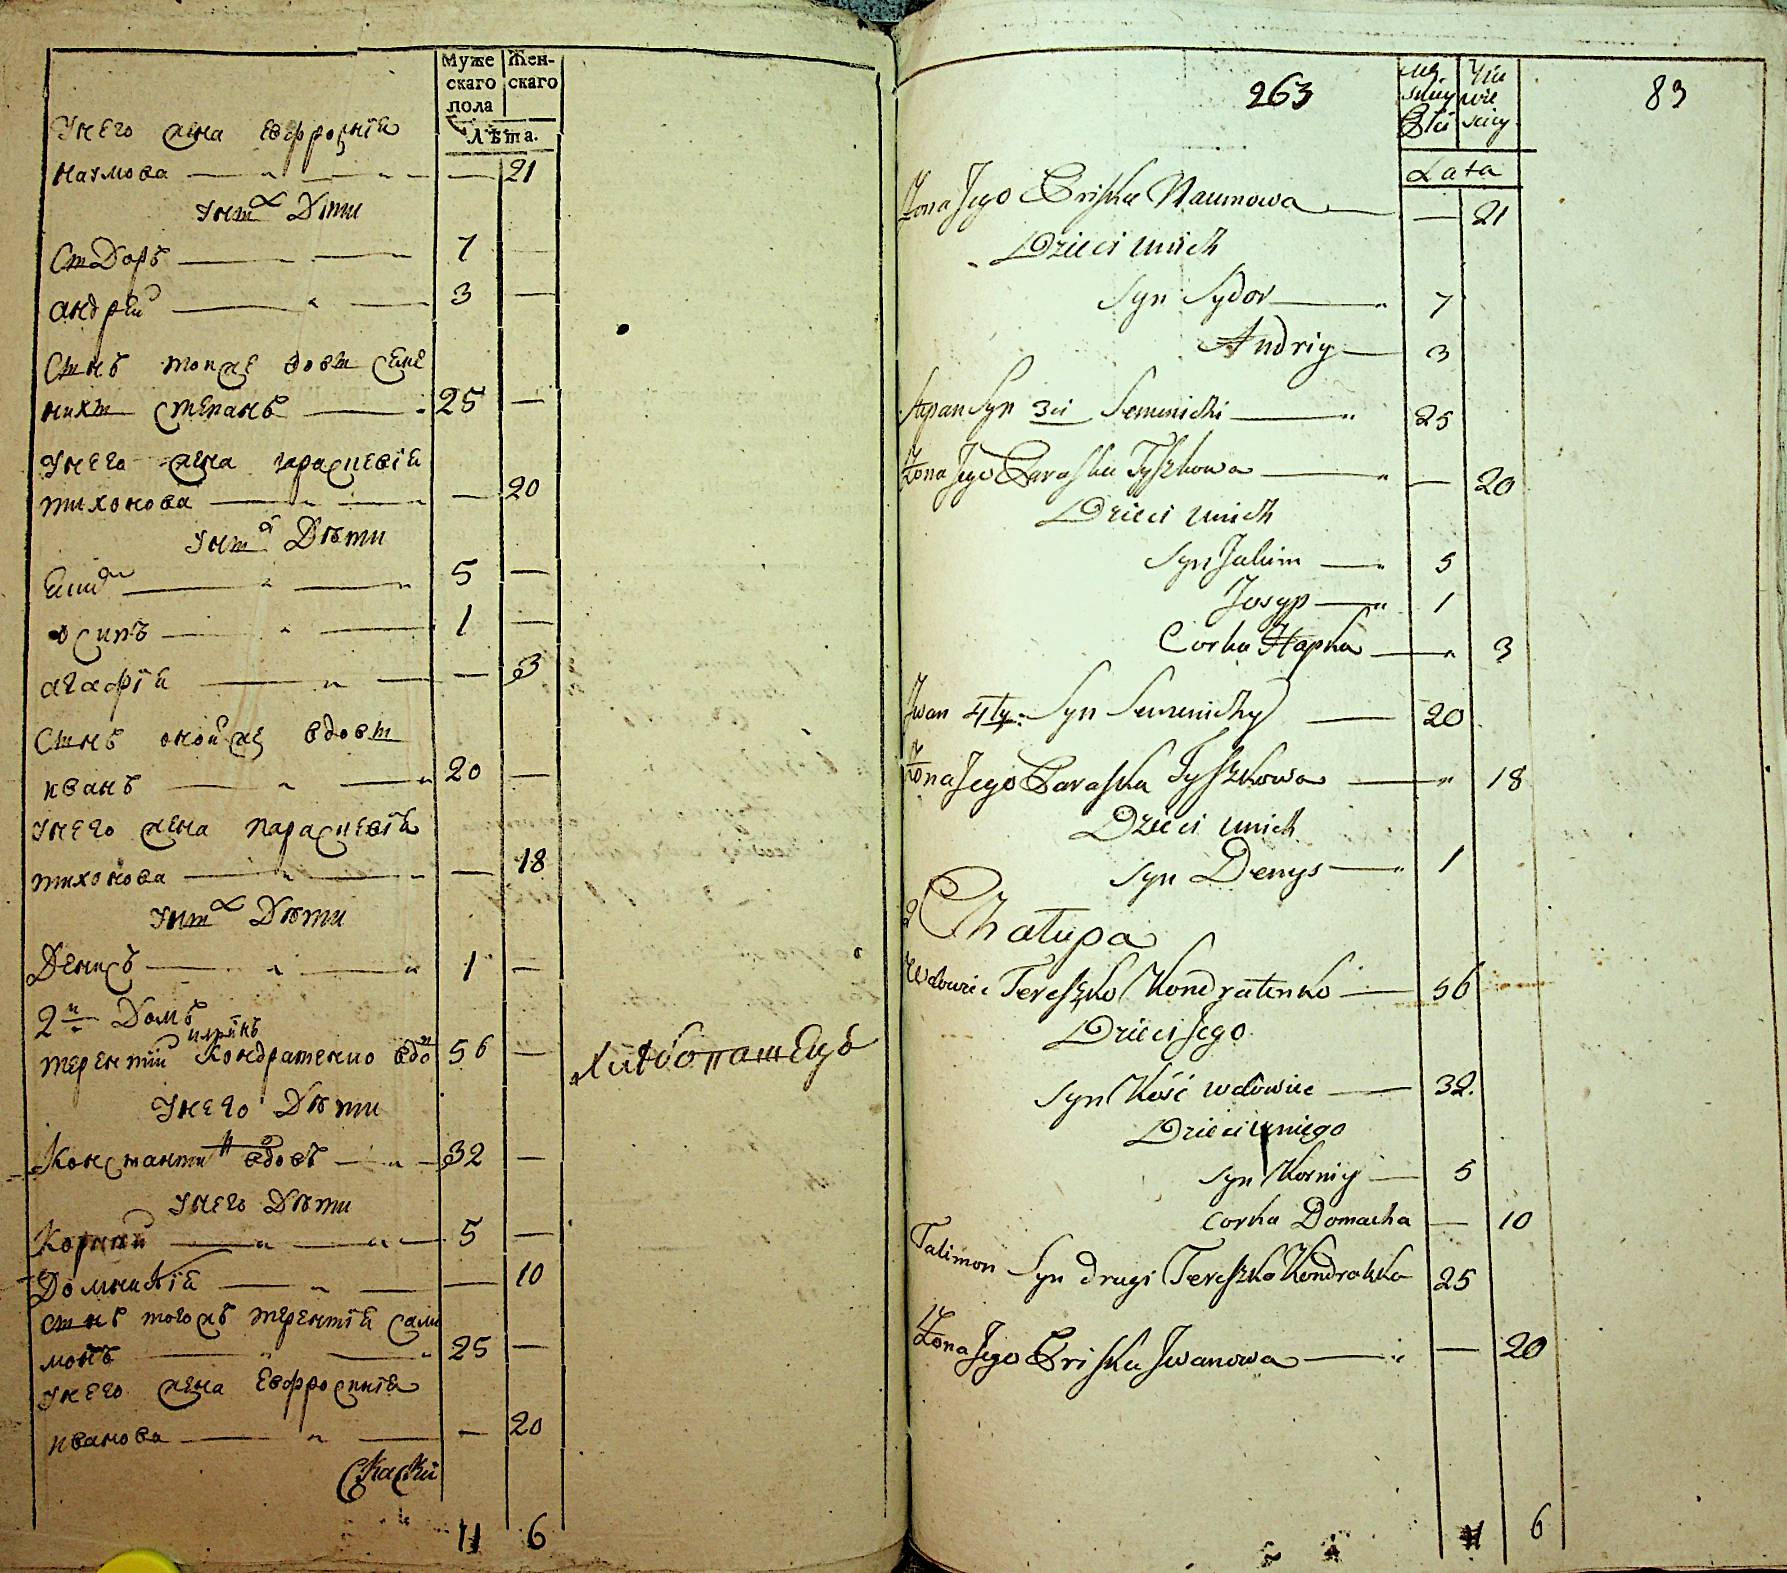 Муже
скаго
пола
Жен-
скаго
Лѣта.
Унего жена Евфросиніа
наумова — — 21
Унихъ Дѣти
Сидоръ — 7 —
андрей — 3 —
Сынъ тояже вдовы Семе
нихи Степанъ — 25 —
Унего жена параскевіа
тихонова — — 20
Унихъ Дѣти
Еким — 5 —
осипъ — 1 —
агафіа — — 3
Сынъ онойже вдовы
иванъ — 20 —
Унего жена параскевіа
тихонова — — 18
Унихъ Дѣти
Денисъ — 1 —
2й Домъ
терентий Кондратенко вдо 56 —
Унего Дѣти
Константин вдовъ — 32 —
Унего Дѣти
Корний — 5 —
Домникіа — — 10
сынъ тогожъ терентіа Сали
монъ — 25 —
Унего жена Евфросиніа
иванова — — 20
Скаски
11 6
хлѣбопашецъ
263
83
Lata
Żona Jego Priska Naumowa — — 21
Dzieci unich
Syn Sydor — 7
Andriy — 3
Stepan Syn 3ci Semenichi — 25
Żona Jego Paraska Tyszkowa — — 20
Dzieci unich
Syn Jakim — 5
Josyp — 1
Corka Hapka — 3
Iwan 4ty: Syn Semenichy — 20
Żona Jego Paraska Tyszkowa — 18
Dzieci unich
Syn Denys — 1
2 Chałupa
Wdowiec Tereszko Kondratenko — 56
Dzieci Jego
Syn Kość wdowiec — 32.
Dzieci uniego
Syn Korniy — 5
Corka Domacha — 10
Talimon Syn drugi Tereszka Kondratka 25
Żona Jego Priska Iwanowa — — 20
11 6